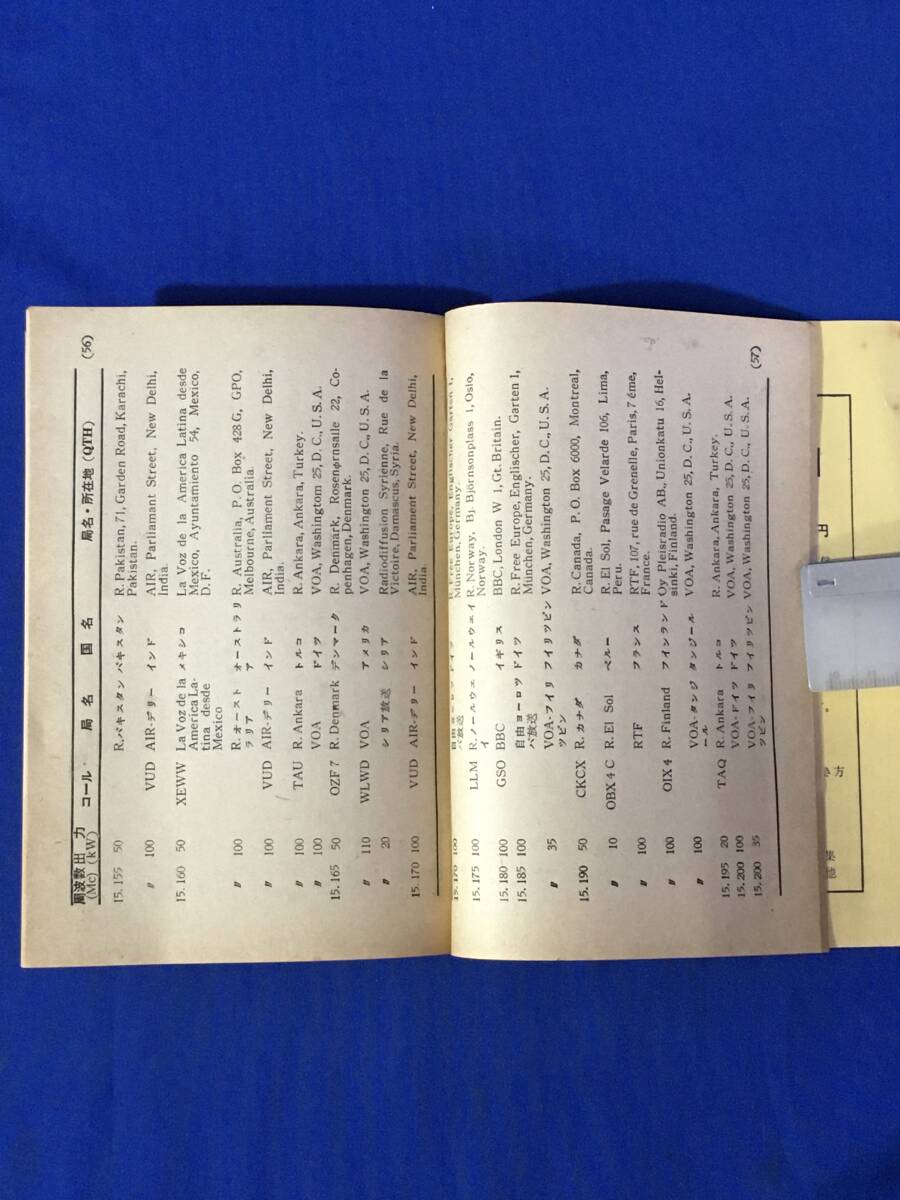 周波数 出力 コール 局名 国名 局名・所在地 (QTH) (56)
(Mc) (kW)
15.155 50 R.パキスタン パキスタン R. Pakistan, 71, Garden Road, Karachi,
Pakistan.
〃 100 VUD AIR-デリー インド AIR, Parliamant Street, New Delhi,
India.
15.160 50 XEWW La Voz de la メキシコ La Voz de la America Latina desde
America La- Mexico, Ayuntamiento 54, Mexico,
tina desde D. F.
Mexico
〃 100 R.オースト オーストラリ R. Australia, P. O. Box 428 G, GPO,
ラリア ア Melborne, Australia.
〃 100 VUD AIR-デリー インド AIR, Parliament Street, New Delhi,
India.
〃 100 TAU R. Ankara トルコ R. Ankara, Ankara, Turkey.
〃 100 VOA ドイツ VOA, Washingtom 25, D. C., U. S. A.
15.165 50 OZF 7 R. Denmark デンマーク R. Denmark, Rosenørnsalle 22, Co-
penhagen, Denmark.
〃 110 WLWD VOA アメリカ VOA, Washington 25, D. C., U. S. A.
〃 20 シリア放送 シリア Radiodiffusion Syriénne, Rue de la
Victoire, Damascus, Syria.
15.170 100 VUD AIR-デリー インド AIR, Parliament Street, New Delhi,
India.
15.170 100 自由ヨーロッ ドイツ R. Free Europe, Englischer Garten 1,
パ放送 München, Germany.
15.175 100 LLM R.ノールウェ ノールウェイ R. Norway, Bj. Björnsonplass 1, Oslo,
イ Norway.
15.180 100 GSO BBC イギリス BBC, London W 1, Gt. Britain.
15.185 100 自由ヨーロッ ドイツ R. Free Europe, Englischer, Garten 1,
パ放送 München, Germany.
〃 35 VOA-フィリ フィリッピン VOA, Washington 25, D. C., U. S. A.
ッピン
15.190 50 CKCX R.カナダ カナダ R. Canada, P. O. Box 6000, Montreal,
Canada.
〃 10 OBX 4 C R. El Sol ペルー R. El Sol, Pasage Velarde 106, Lima,
Peru.
〃 100 RTF フランス RTF, 107, rue de Grenelle, Paris, 7 éme,
France.
〃 100 OIX 4 R. Finland フィンランド Oy Pleisradio AB., Unionkatu 16, Hel-
sinki, Finland.
〃 100 VOA-タンジ タンジール VOA, Washington 25, D. C., U. S. A.
ール
15.195 20 TAQ R. Ankara トルコ R. Ankara, Ankara, Turkey.
15.200 100 VOA-ドイツ ドイツ VOA, Washington 25, D. C., U. S. A.
15.200 35 VOA-フィリ フィリッピン VOA, Washington 25, D. C., U. S. A.
ッピン
(57)
き方
集
他